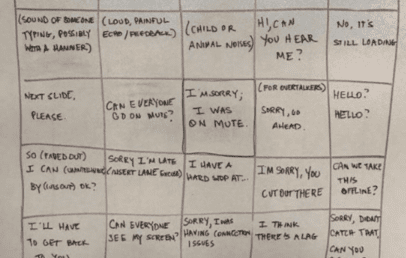 (SOUND OF SOMEONE
TYPING, POSSIBLY
WITH A HAMMER)
(LOUD, PAINFUL
ECHO / FEEDBACK)
(CHILD OR
ANIMAL NOISES)
HI, CAN
YOU HEAR
ME?
NO, IT'S
STILL LOADING
NEXT SLIDE,
PLEASE.
CAN EVERYONE
GO ON MUTE?
I'M SORRY;
I WAS
ON MUTE.
(FOR OVERTALKERS)
SORRY, GO
AHEAD.
HELLO?
HELLO?
SO (FADES OUT)
I CAN
BY (CUTS OUT) OK?
SORRY I'M LATE
(INSERT LAME EXCUSE)
I HAVE A
HARD STOP AT...
I'M SORRY, YOU
CUT OUT THERE
CAN WE TAKE
THIS
OFFLINE?
I'LL HAVE
TO GET BACK
TO YOU
CAN EVERYONE
SEE MY SCREEN?
SORRY, I WAS
HAVING CONNECTION
ISSUES
I THINK
THERE'S A LAG
SORRY, DIDN'T
CATCH THAT,
CAN YOU